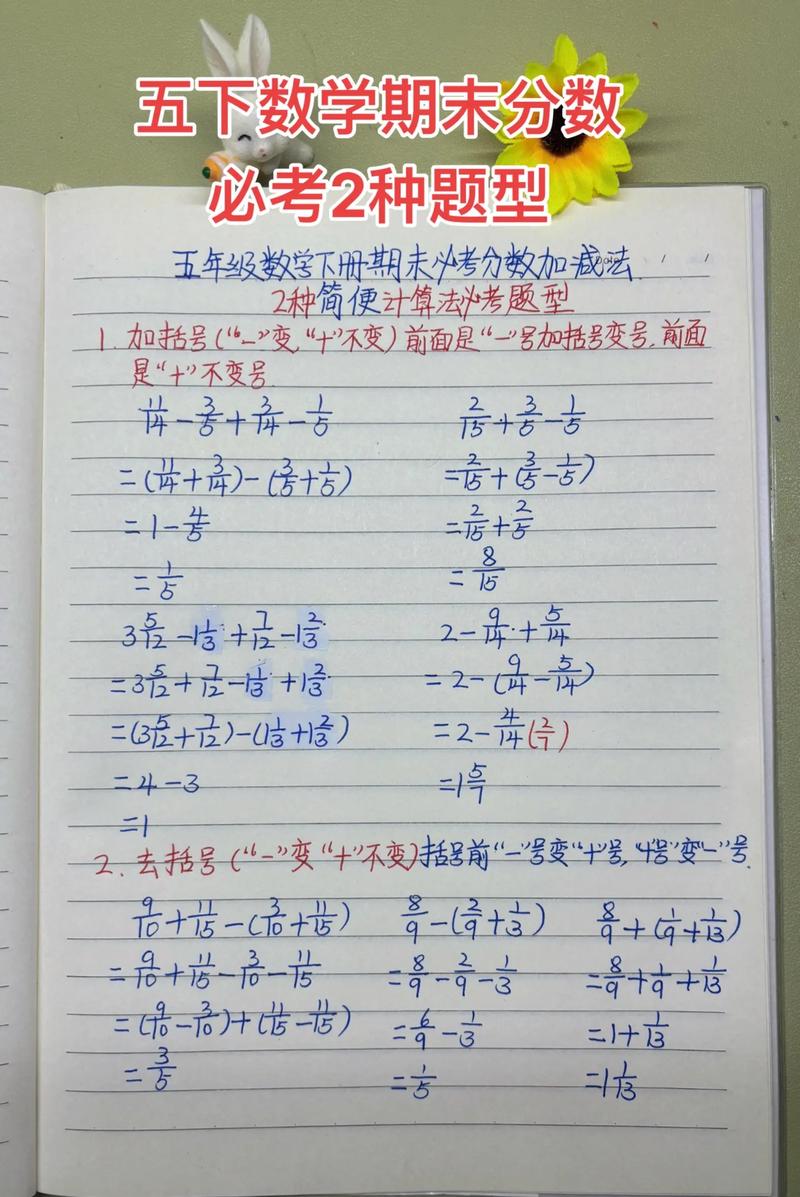 五下数学期末分数
必考2种题型
五年级数学下册期末必考分数加减法
2种简便计算法必考题型
1. 加括号(“-”变,“+”不变) 前面是“-”号加括号变号,前面
是“+”不变号
11/14 - 3/5 + 3/14 - 1/5
= (11/14 + 3/14) - (3/5 + 1/5)
= 1 - 4/5
= 1/5
2/15 + 3/5 - 1/5
= 2/15 + (3/5 - 1/5)
= 2/15 + 2/5
= 8/15
3 5/12 - 1 1/3 + 7/12 - 1 2/3
= 3 5/12 + 7/12 - 1 1/3 + 1 2/3
= (3 5/12 + 7/12) - (1 1/3 + 1 2/3)
= 4 - 3
= 1
2 - 9/14 + 5/14
= 2 - (9/14 - 5/14)
= 2 - 4/14 (2/7)
= 1 5/7
2. 去括号 (“-”变“+”不变) 括号前“-”号变“+”号,“+”号“变“-”号.
9/10 + 11/15 - (3/10 + 11/15)
= 9/10 + 11/15 - 3/10 - 11/15
= (9/10 - 3/10) + (11/15 - 11/15)
= 3/5
8/9 - (2/9 + 1/3)
= 8/9 - 2/9 - 1/3
= 6/9 - 1/3
= 1/5
8/9 + (1/9 + 1/13)
= 8/9 + 1/9 + 1/13
= 1 + 1/13
= 1 1/13